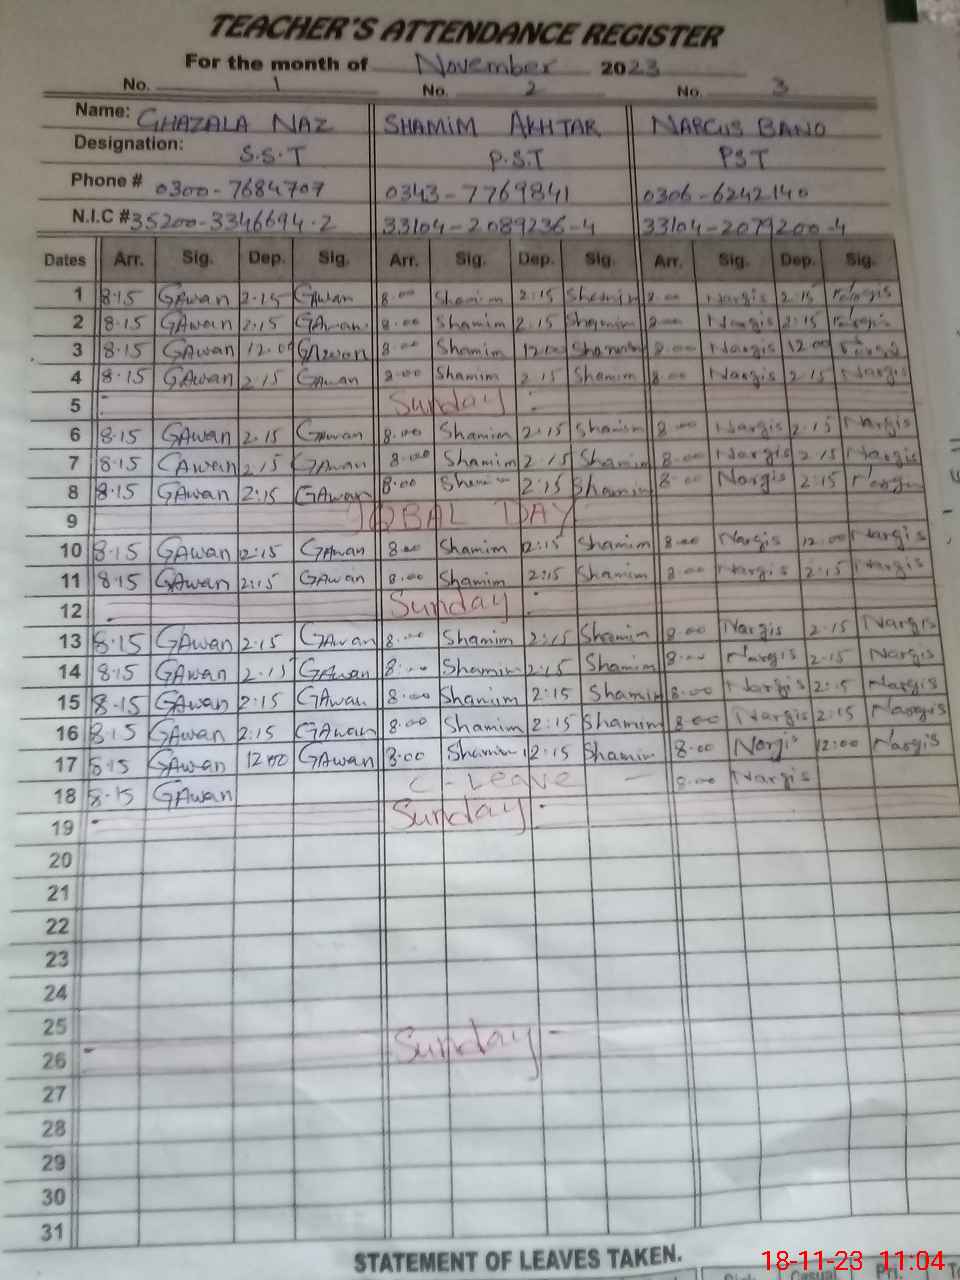 TEACHER'S ATTENDANCE REGISTER
For the month of November 2023
No. 1 No. 2 No. 3
Name: GHAZALA NAZ SHAMIM AKHTAR NARGUS BANO
Designation: S.S.T P.S.T PST
Phone # 0300-7684707 0343-7769841 0306-6242140
N.I.C # 35200-3346694-2 33104-2089236-4 33104-2079200-4
Dates Arr. Sig. Dep. Sig. Arr. Sig. Dep. Sig. Arr. Sig. Dep. Sig.
1 8.15 GAwan 2.15 GAwan 8.00 Shamim 2:15 Shamim 8.00 Nargis 2.15 Nargis
2 8.15 GAwan 2:15 GAwan 8.00 Shamim 2.15 Shamim 8.00 Nargis 2:15
3 8.15 GAwan 12.00 GAwan 8.00 Shamim 12.00 Shamim 8.00 Nargis 12.00
4 8.15 GAwan 2.15 GAwan 8.00 Shamim 2.15 Shamim 8.00 Nargis 2.15 Nargis
5 Sunday
6 8.15 GAwan 2.15 GAwan 8.00 Shamim 2:15 Shamim 8.00 Nargis 2.15 Nargis
7 8.15 GAwan 2.15 GAwan 8.00 Shamim 2.15 Shamim 8.00 Nargis 2.15 Nargis
8 8.15 GAwan 2:15 GAwan 8.00 Shamim 2:15 Shamim 8.00 Nargis 2:15
9 IQBAL DAY
10 8.15 GAwan 2:15 GAwan 8.00 Shamim 2:15 Shamim 8.00 Nargis 12.00 Nargis
11 8.15 GAwan 2:15 GAwan 8.00 Shamim 2:15 Shamim 8.00 Nargis 2:15 Nargis
12 Sunday
13 8.15 GAwan 2.15 GAwan 8.00 Shamim 2:15 Shamim 8.00 Nargis 2.15 Nargis
14 8.15 GAwan 2.15 GAwan 8.00 Shamim 2:15 Shamim 8.00 Nargis 2.15 Nargis
15 8.15 GAwan 2:15 GAwan 8.00 Shamim 2:15 Shamim 8.00 Nargis 2:15 Nargis
16 8.15 GAwan 2:15 GAwan 8.00 Shamim 2:15 Shamim 8.00 Nargis 2:15 Nargis
17 8.15 GAwan 12.00 GAwan 8:00 Shamim 12:15 Shamim 8.00 Nargis 12:00 Nargis
18 8.15 GAwan C-Leave 8.00 Nargis
19 Sunday
20
21
22
23
24
25
26 Sunday
27
28
29
30
31
STATEMENT OF LEAVES TAKEN.
18-11-23 11:04
Casual